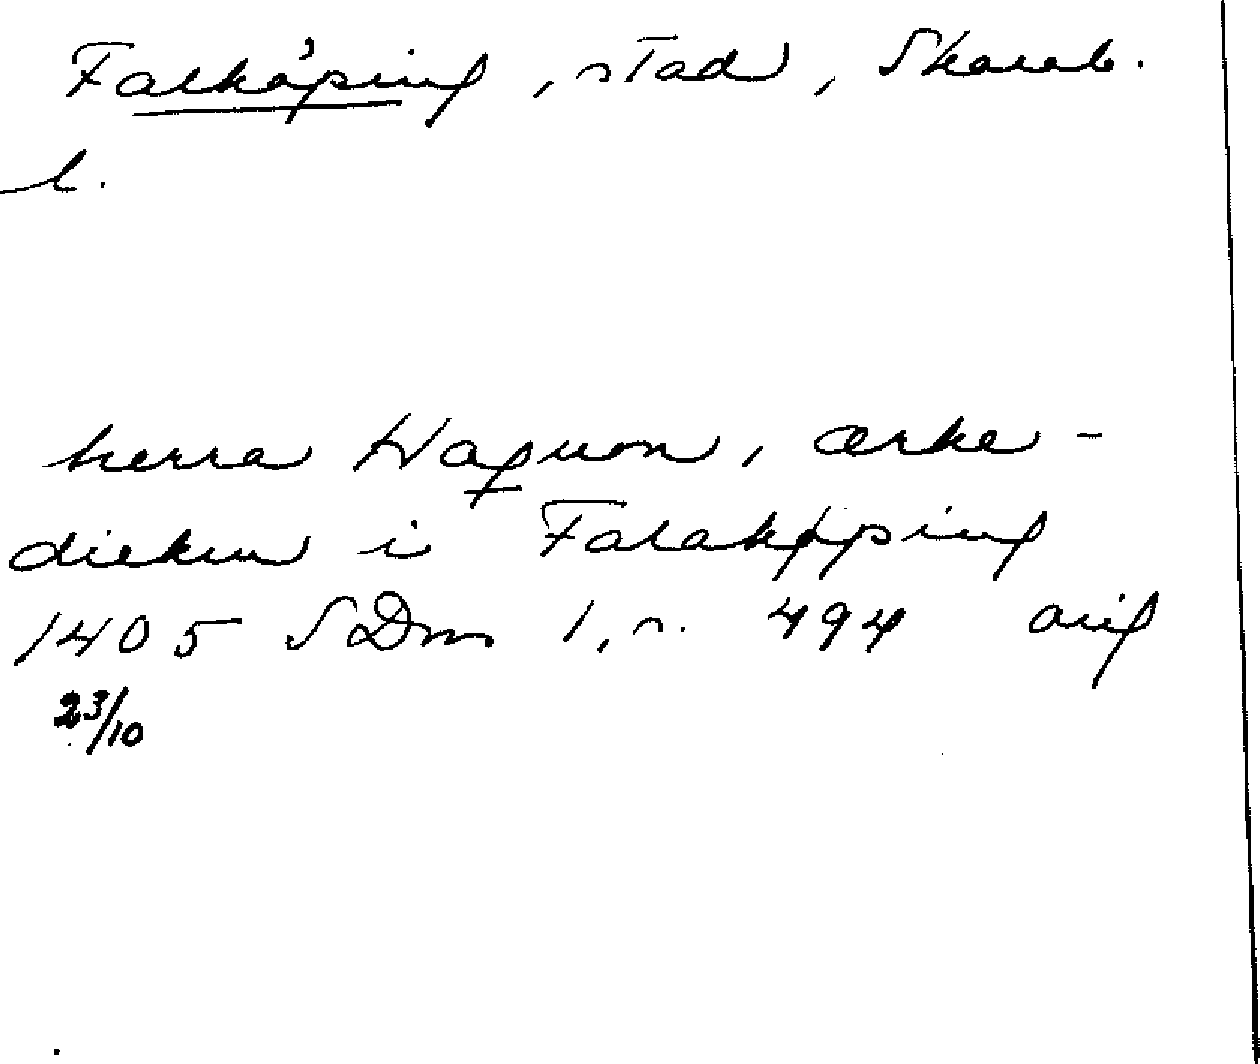 Falköping, stad, Skarab.
l.
herra Haquon, ærke-
diekn i Falakøping
1405 SDns 1, s. 494 orig
23/10